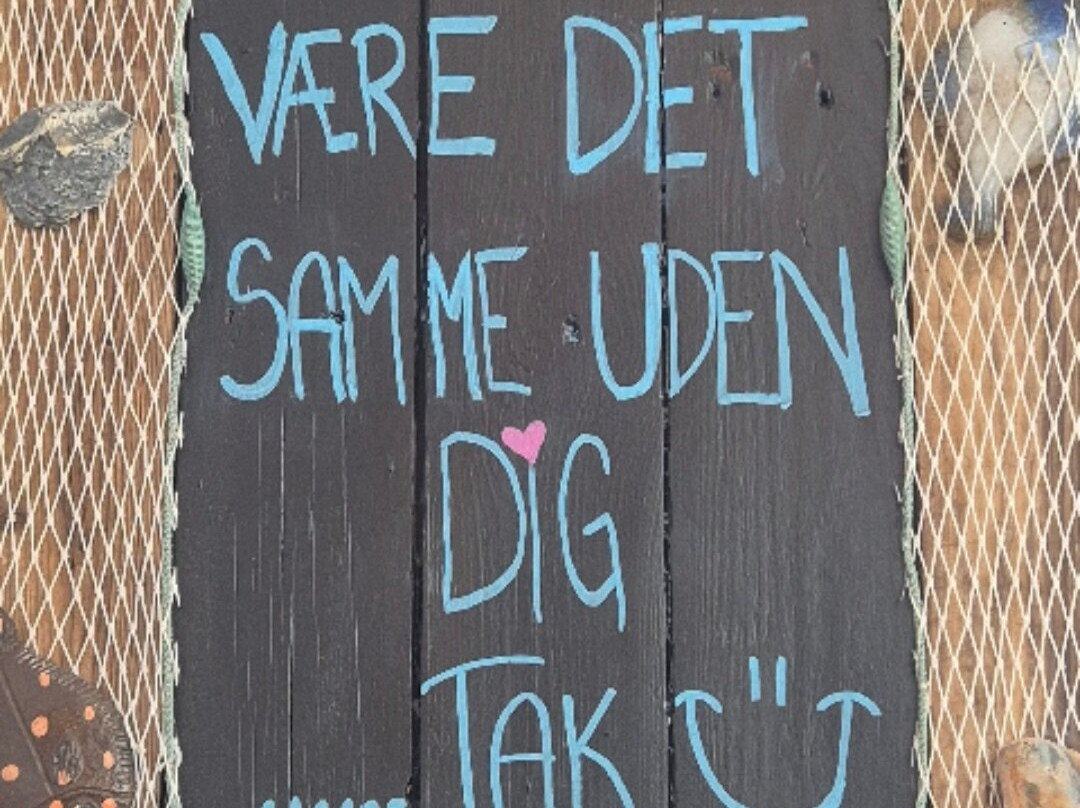 VÆRE DET
SAMME UDEN
DIG
TAK